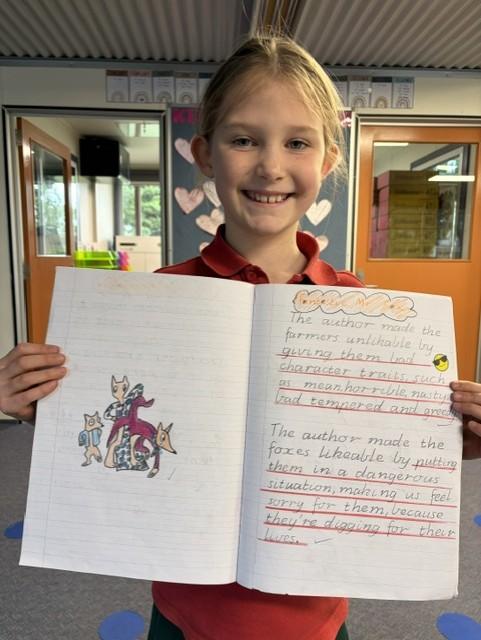 Fantastic Mr Fox
The author made the
farmers unlikable by
giving them bad
character traits, such
as mean, horrible, nasty
bad tempered and greedy
The author made the
foxes likeable by putting
them in a dangerous
situation, making us feel
sorry for them, because
they're digging for their
lives.